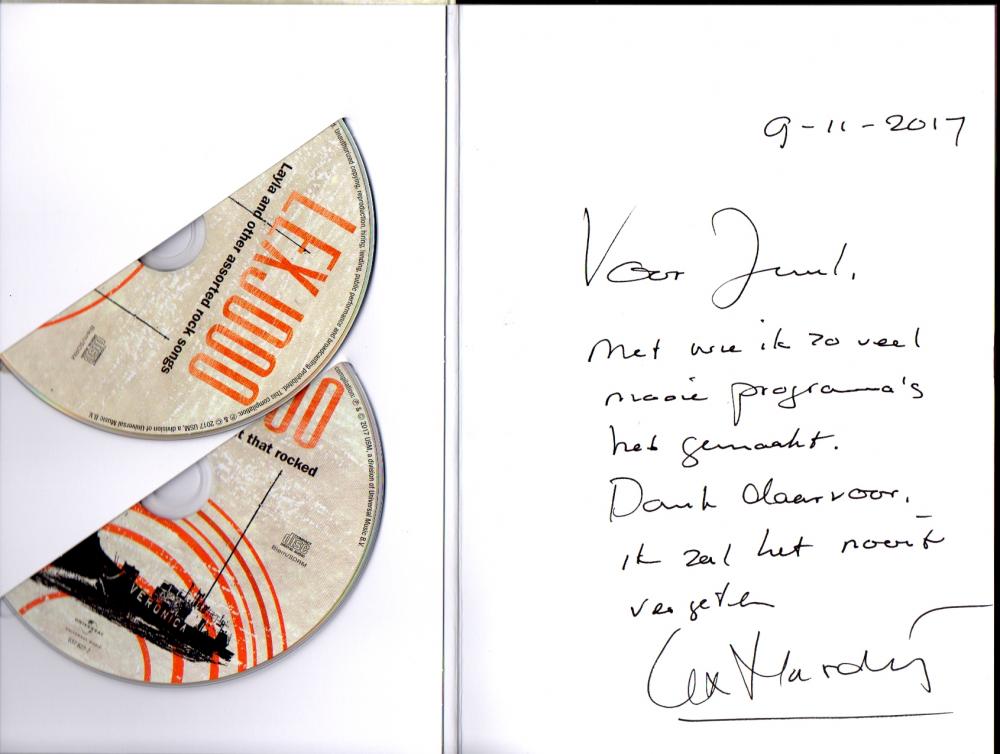 unauthorized copying, reproduction, hiring, lending, public performance and broadcasting prohibited. This compilation: ℗ & © 2017 USM, a division of Universal Music B.V.
LEXJOOO
Layla and other assorted rock songs
COMPACT disc DIGITAL AUDIO
Biem/SDRM
compilation: ℗ & © 2017 USM, a division of Universal Music B.V.
OO
t that rocked
COMPACT disc DIGITAL AUDIO
Biem/SDRM
VERONICA
UNIVERSAL
UNIVERSAL MUSIC
9-11-2017
Voor Juul.
Met wie ik zo veel
mooie programma's
heb gemaakt.
Dank daarvoor.
ik zal het nooit
vergeten
Lex Harding